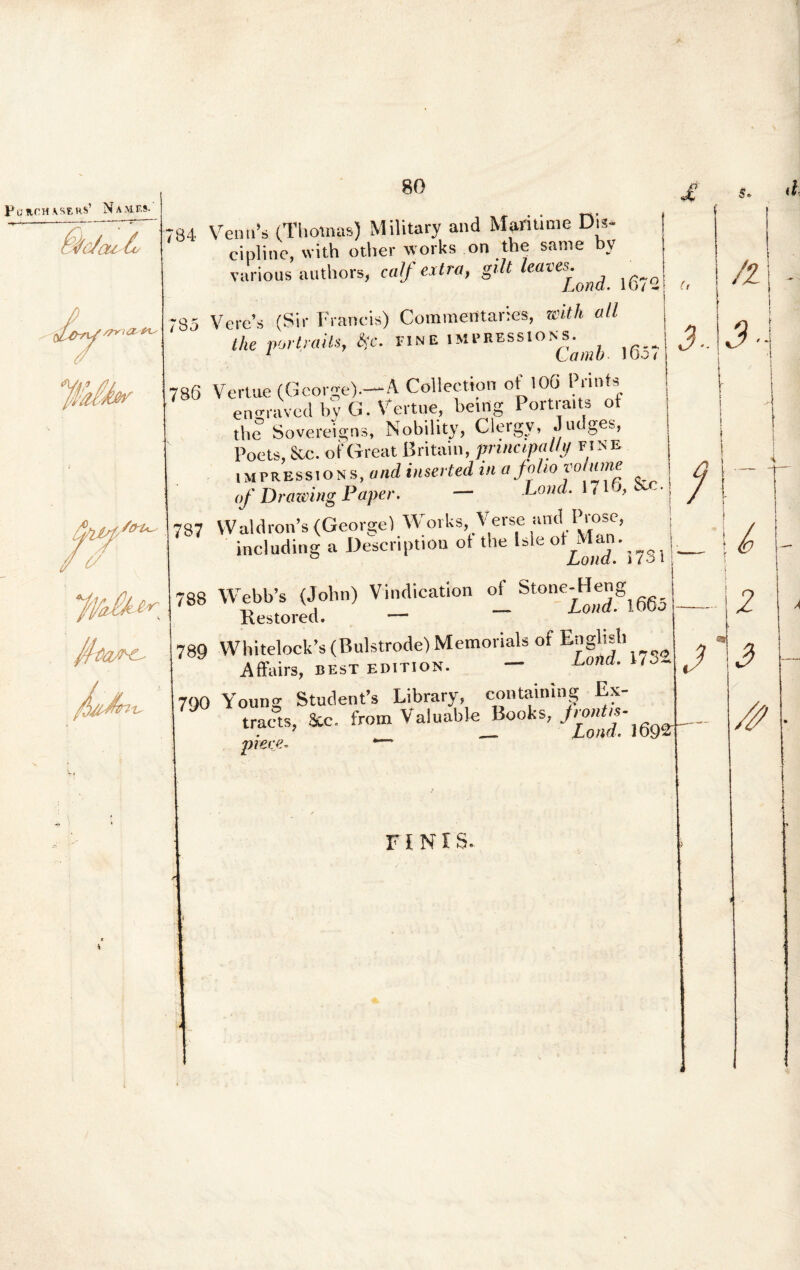 80
PURCHASERS' NAMES.
£ s. d.
784 Venn's (Thomas) Military and Maritime Dis-
cipline, with other works on the same by
various authors, calf extra, gilt leaves.
Lond. 1672
12
785 Vere's (Sir Francis) Commentaries, with all
the portraits, &c. FINE IMPRESSIONS.
Camb. 1657
Longman
3 3
Walker
786 Vertue (George).—A Collection of 106 Prints
engraved by G. Vertue, being Portraits of
the Sovereigns, Nobility, Clergy, Judges,
Poets, &c. of Great Britain, principally FINE
IMPRESSIONS, and inserted in a folio volume
of Drawing Paper. — Lond. 1716, &c.
9 —
787 Waldron's (George) Works, Verse and Prose,
including a Description of the Isle of Man.
Lond. 1731
— 6
Walker
788 Webb's (John) Vindication of Stone-Heng
Restored. — — Lond. 1665
— 2
Hoare
789 Whitelock's (Bulstrode) Memorials of English
Affairs, BEST EDITION. — Lond. 1732
3 3
790 Young Student's Library, containing Ex-
tracts, &c. from Valuable Books, frontis-
piece. — — Lond. 1692
— 10
FINIS.